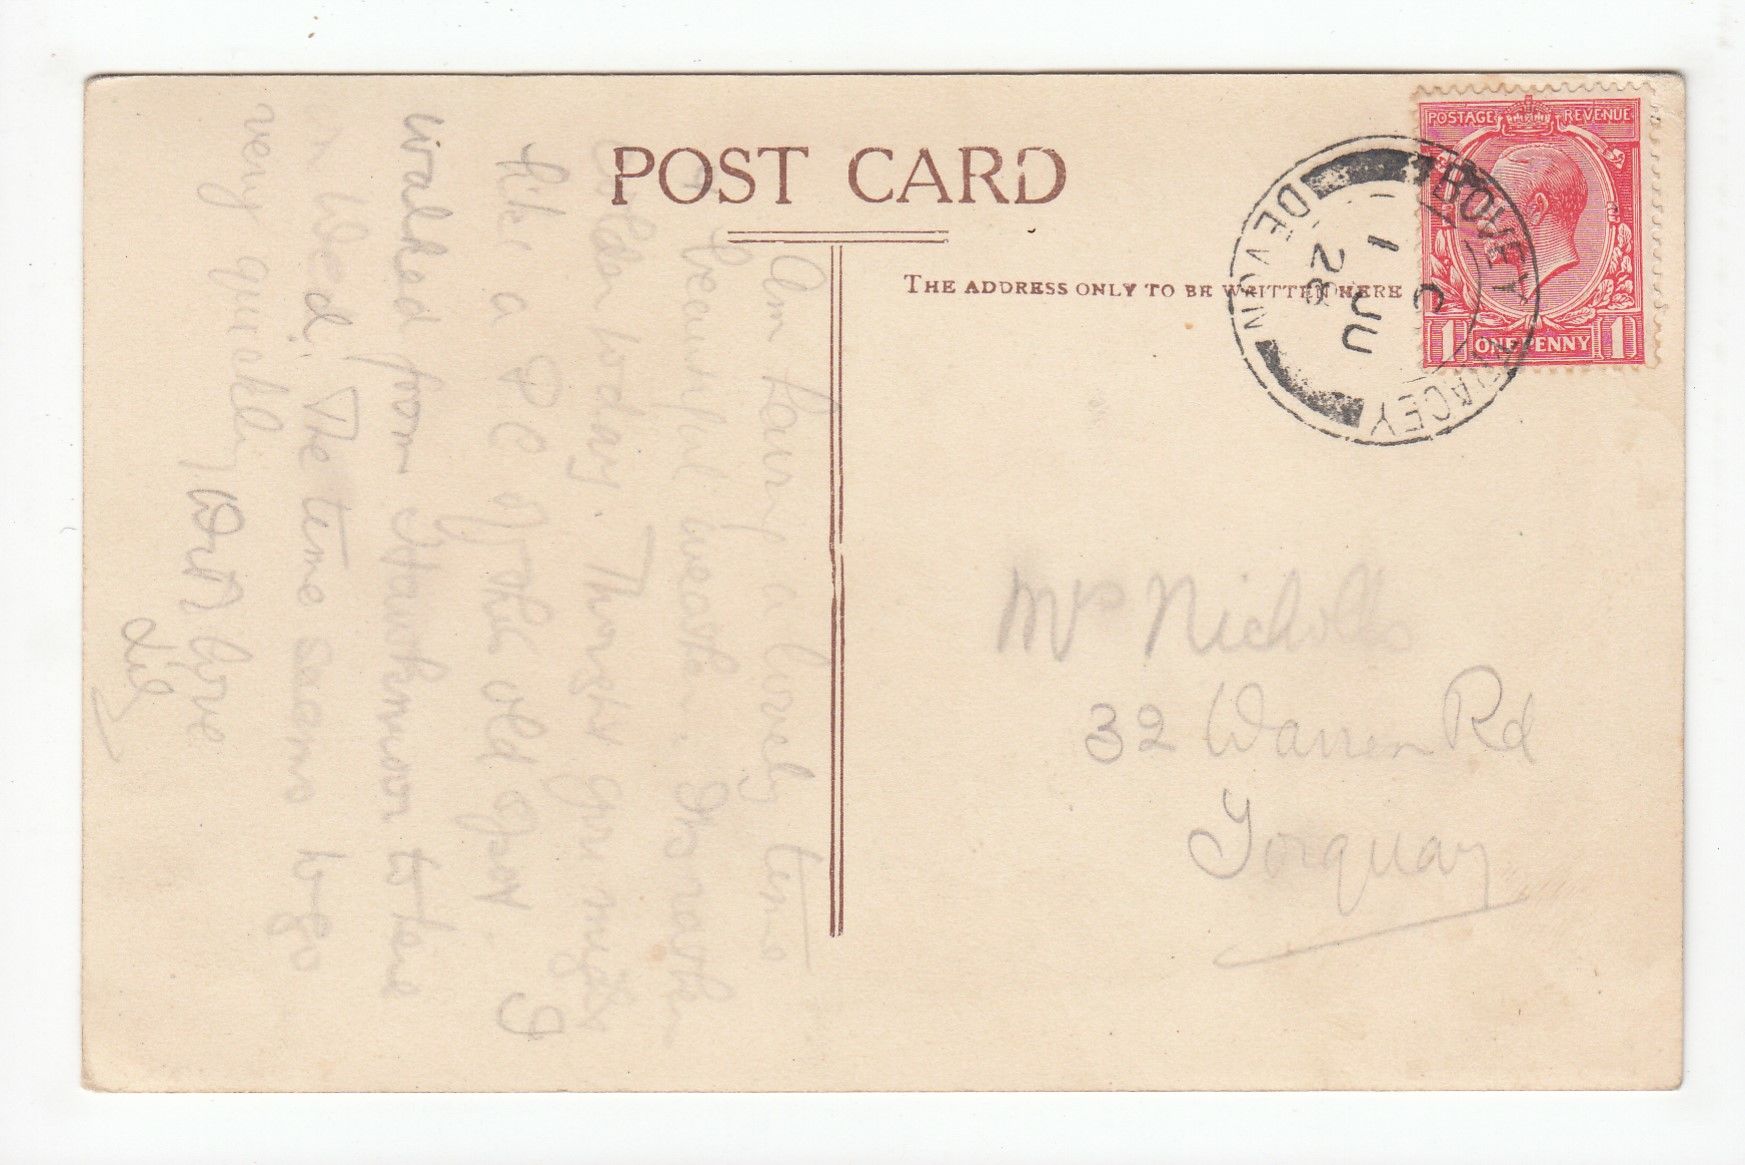 POST CARD
THE ADDRESS ONLY TO BE WRITTEN HERE
POSTAGE REVENUE
1 ONE PENNY 1
BOVEY TRACEY
DEVON
1 JU
28
Am having a lovely time
& beautiful weather. Its rather
colder today. Thought you might
like a PC of this old spot. I
walked from Hawkmoor to here
on Wed. The time seems to go
very quickly
With love
Mrs Nicholls
32 Warren Rd
Torquay